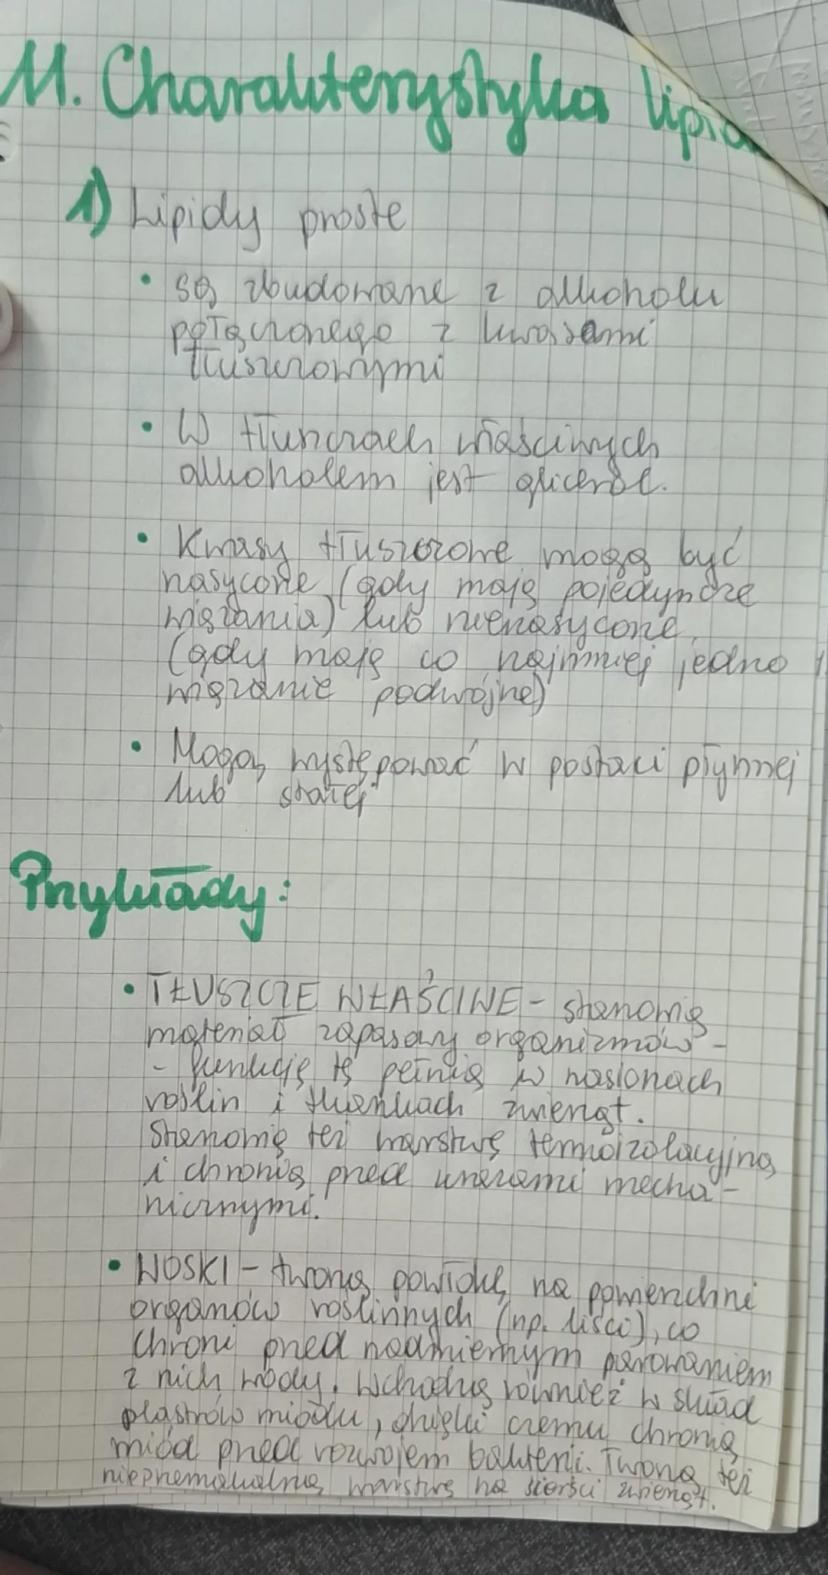 M. Charakterystyka lipid
1) Lipidy proste
• są zbudowane z alkoholu
połączonego z kwasami
tłuszczowymi
• W tłuszczach właściwych
alkoholem jest glicerol.
• Kwasy tłuszczowe mogą być
nasycone (gdy mają pojedyncze
wiązania) lub nienasycone
(gdy mają co najmniej jedno
wiązanie podwójne)
• Mogą występować w postaci płynnej
lub stałej
Przykłady:
• TŁUSZCZE WŁAŚCIWE - stanowią
materiał zapasowy organizmów -
- funkcję tę pełnią w nasionach
roślin i tkankach zwierząt.
Stanowią też warstwę termoizolacyjną
i chronią przed urazami mecha-
nicznymi.
• WOSKI - tworzą powłokę na powierzchni
organów roślinnych (np. liści), co
chroni przed nadmiernym parowaniem
z nich wody. Wchodzą również w skład
plastrów miodu, dzięki czemu chronią
miód przed rozwojem bakterii. Tworzą też
nieprzemakalną warstwę na sierści zwierząt.